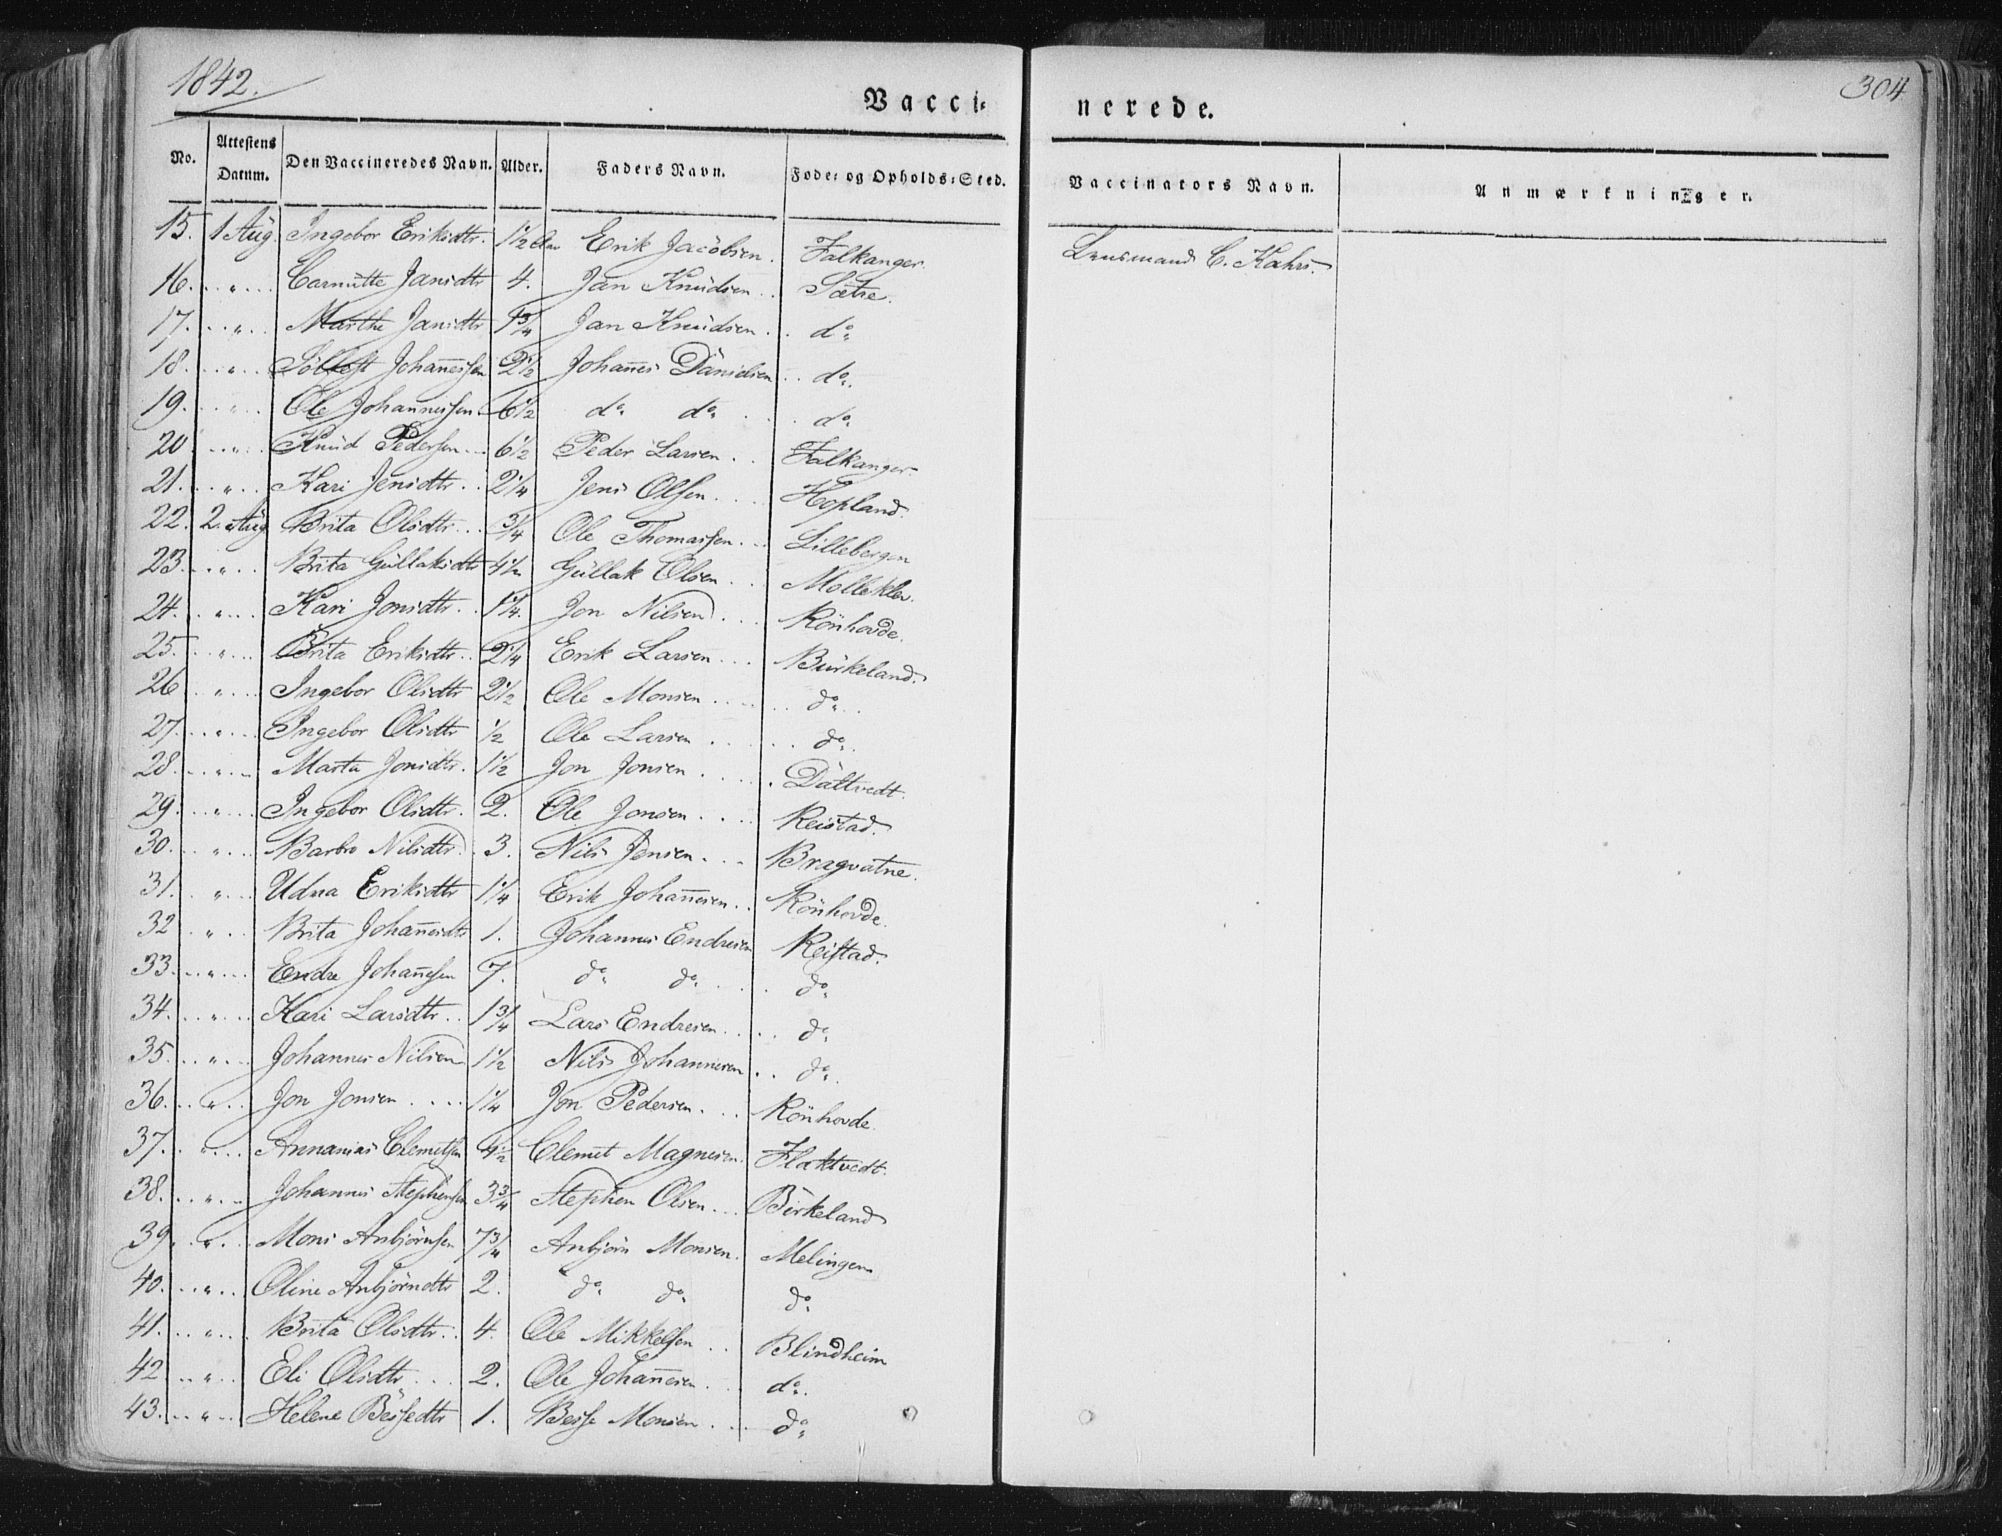 1842.
304
Vacci-
nerede.
No. Attestens Datum. Den Vaccineredes Navn. Alder. Faders Navn. Føde- og Opholds-Sted. Vaccinators Navn. Anmærkninger.
15. 1 Aug Ingebor Eriksdtr. 1 1/2 Aar Erik Jacobsen. Falkanger. Lensmand C. Kahrs.
16. " Carnutte Jansdtr 4. Jan Knudsen Sætre.
17. " Marthe Jansdtr 1 3/4 Jan Knudsen do
18. " Söllest Johannessen 2 1/2 Johannes Danielsen do.
19. " Ole Johannessen 6 1/2 do do do.
20 " Knud Pedersen 6 1/2 Peder Larsen Falkanger.
21. " Kari Jensdtr 2 1/4 Jens Olsen Hopland.
22. 2. Aug Brita Olsdtr 3/4 Ole Thomassen Lillebergen
23. " Brita Gullaksdtr 4 1/2 Gullak Olsen Molleklev.
24. " Kari Jonsdtr 1 1/4. Jon Nilsen Rönhovde.
25. " Brita Eriksdtr 2 1/4 Erik Larsen Birkeland.
26 " Ingebor Olsdtr 2 1/2 Ole Monsen do
27. " Ingebor Olsdtr 1/2 Ole Larsen do.
28. " Marta Jonsdtr. 1 1/2 Jon Jonsen Dattvedt.
29. " Ingebor Olsdtr. 2. Ole Jonsen Reistad.
30. " Barbro Nilsdtr. 3. Nils Jensen Bragvatne.
31. " Udna Eriksdtr 1 1/4 Erik Johannesen Rönhovde.
32 " Brita Johannesdtr 1. Johannes Endresen Reistad.
33. " Endre Johannessen 7. do do do
34. " Kari Larsdtr 1 3/4 Lars Endresen do
35. " Johannes Nilsen 1 1/2 Nils Johannesen do.
36. " Jon Jonsen 1 1/4 Jon Pedersen Rönhovde.
37. " Annanias Clemetsen 4 1/2 Clemet Magnesen. Flaktvedt.
38. " Johannes Stephensen 3 3/4 Stephen Olsen Birkeland
39. " Mons Anbjörnsen 7 3/4 Anbjörn Monsen. Melingen
40. " Oline Anbjörndtr 2. do do do
41. " Brita Olsdtr. 4. Ole Mikkelsen Blindheim
42 " Eli Olsdtr 2. Ole Johannesen do.
43. " Helene Bessedtr 1. Besse Monsen do